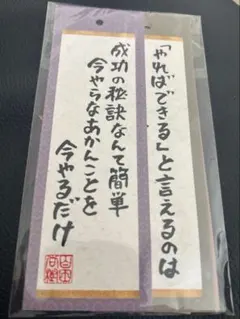 「やればできる」と言えるのは
成功の秘訣なんて簡単
今やらなあかんことを
今やるだけ